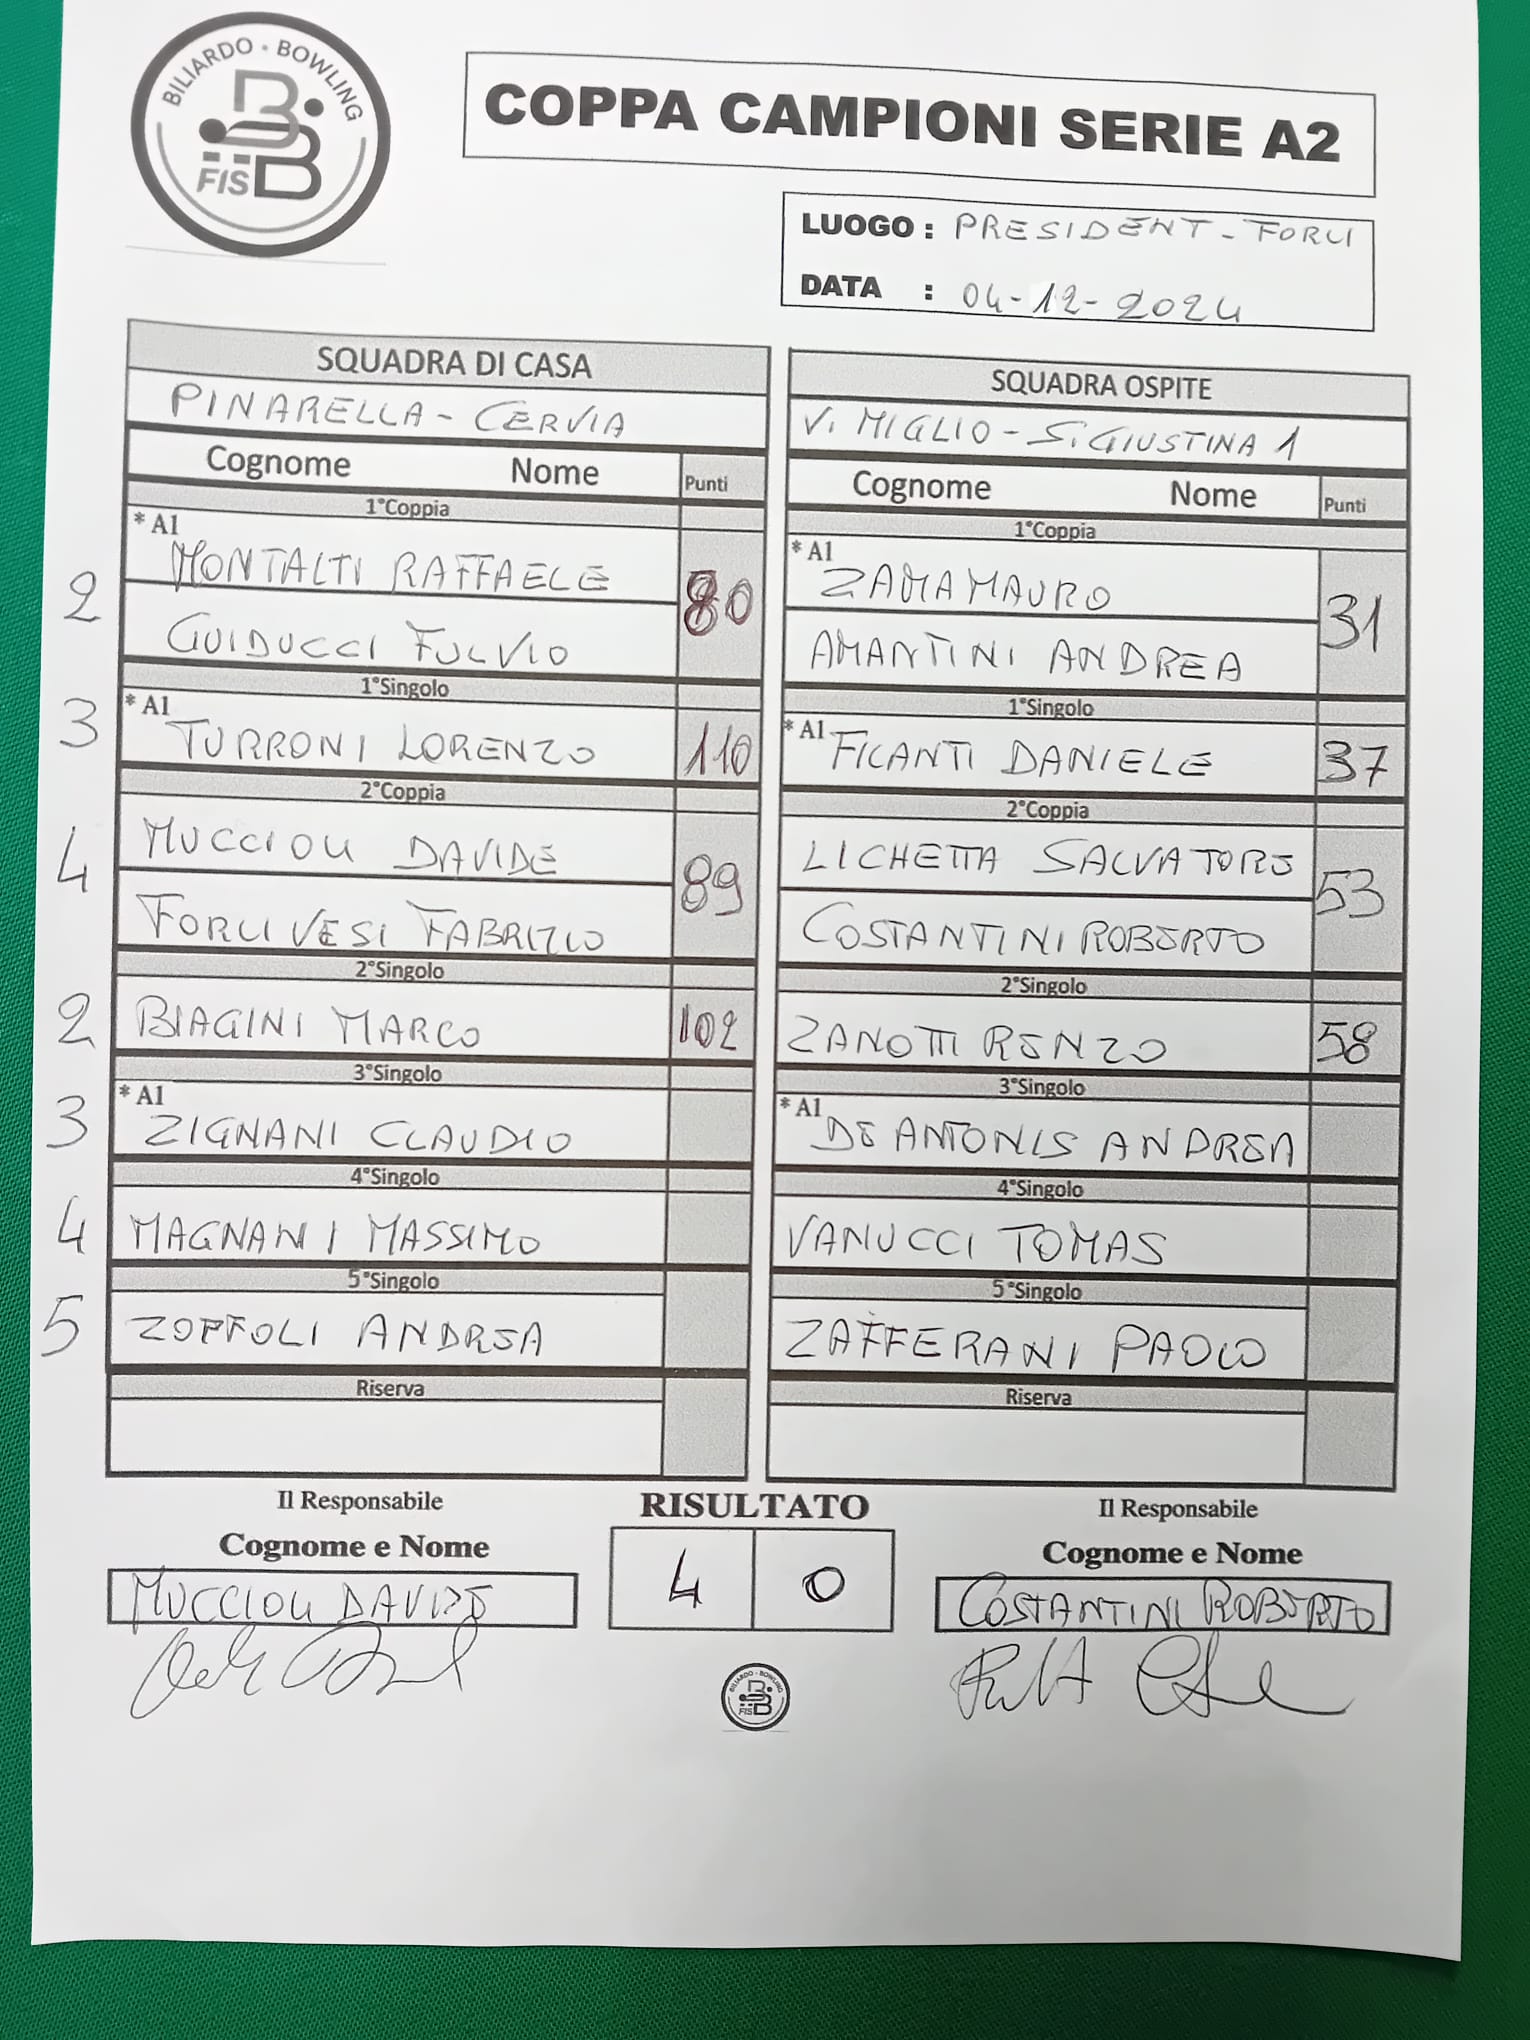 BILIARDO • BOWLING
FISBB
COPPA CAMPIONI SERIE A2
LUOGO : PRESIDENT - FORLI
DATA : 04-12-2024
SQUADRA DI CASA
PINARELLA - CERVIA
Cognome Nome Punti
1°Coppia
* A1
2 MONTALTI RAFFAELE 80
GUIDUCCI FULVIO
1°Singolo
* A1
3 TURRONI LORENZO 110
2°Coppia
4 MUCCIOLI DAVIDE 89
FORLIVESI FABRIZIO
2°Singolo
2 BIAGINI MARCO 102
3°Singolo
* A1
3 ZIGNANI CLAUDIO
4°Singolo
4 MAGNANI MASSIMO
5°Singolo
5 ZOFFOLI ANDREA
Riserva
SQUADRA OSPITE
V. MIGLIO - S. GIUSTINA 1
Cognome Nome Punti
1°Coppia
* A1
ZAMA MAURO 31
AMANTINI ANDREA
1°Singolo
* A1
FICANTI DANIELE 37
2°Coppia
LICHETTA SALVATORE 53
COSTANTINI ROBERTO
2°Singolo
ZANOTTI RENZO 58
3°Singolo
* A1
DE ANTONIS ANDREA
4°Singolo
VANUCCI TOMAS
5°Singolo
ZAFFERANI PAOLO
Riserva
Il Responsabile
Cognome e Nome
MUCCIOLI DAVIDE
RISULTATO
4 0
Il Responsabile
Cognome e Nome
COSTANTINI ROBERTO
BILIARDO • BOWLING
FISBB